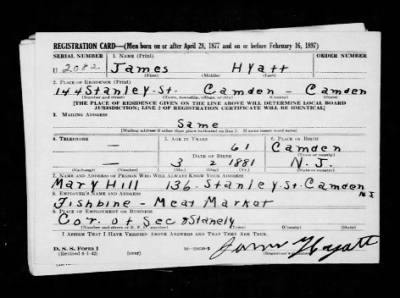 REGISTRATION CARD—(Men born on or after April 28, 1877 and on or before February 16, 1897)
SERIAL NUMBER 1. NAME (Print) ORDER NUMBER
U 2082 James Hyatt
(First) (Middle) (Last)
2. PLACE OF RESIDENCE (Print)
144 Stanley St. Camden - Camden
(Number and street) (Town, township, village, or city) (County) (State)
[THE PLACE OF RESIDENCE GIVEN ON THE LINE ABOVE WILL DETERMINE LOCAL BOARD
JURISDICTION; LINE 2 OF REGISTRATION CERTIFICATE WILL BE IDENTICAL]
3. MAILING ADDRESS
Same
[Mailing address if other than place indicated on line 2. If same insert word same]
4. TELEPHONE 5. AGE IN YEARS 6. PLACE OF BIRTH
— 61 Camden
DATE OF BIRTH
— 3 2 1881 N.J.
7. NAME AND ADDRESS OF PERSON WHO WILL ALWAYS KNOW YOUR ADDRESS
Mary Hill 136. Stanley. St. Camden
N.J.
8. EMPLOYER'S NAME AND ADDRESS
Fishbine - Meat Market
9. PLACE OF EMPLOYMENT OR BUSINESS
Cor. of Sec & Stanely
I AFFIRM THAT I HAVE VERIFIED ABOVE ANSWERS AND THAT THEY ARE TRUE.
D. S. S. Form 1
(Revised 4-1-42) (over)
James Hyatt